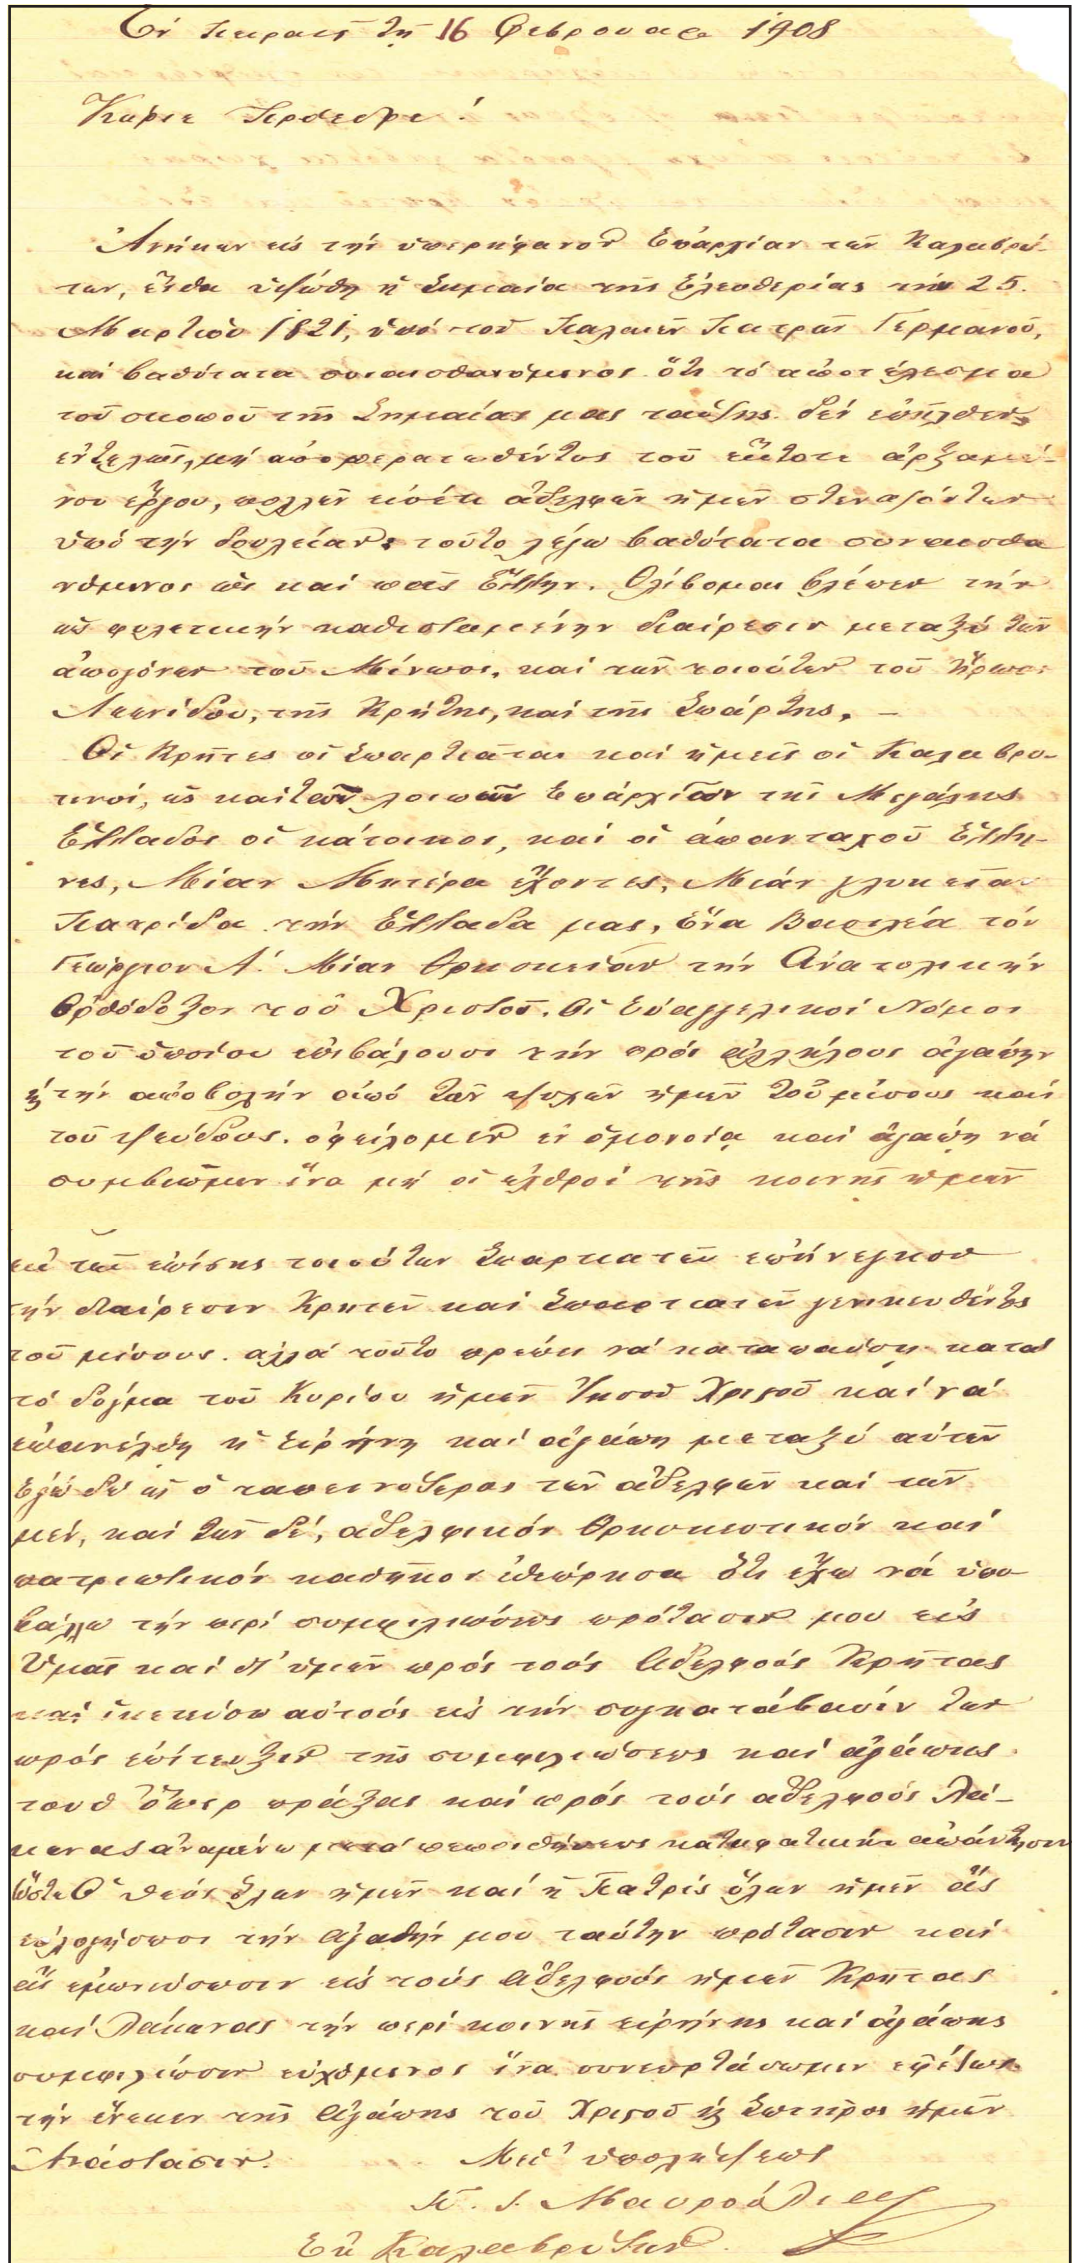 Ἐν Πειραιεῖ τῇ 16 Φεβρουαρ 1908
Κύριε Πρόεδρε!
Ἀνήκων εἰς τήν ὑπερήφανον Ἐπαρχίαν τῶν Καλαβρύ-
των, ἔνθα ὑψώθη ἡ Σημαία τῆς Ἐλευθερίας τήν 25.
Μαρτίου 1821, ὑπό τοῦ Παλαιῶν Πατρῶν Γερμανοῦ,
καί βαθύτατα συναισθανόμενος ὅτι τό ἀποτέλεσμα
τοῦ σκοποῦ τῆς Σημαίας μας ταύτης δέν ἐπῆλθεν
ἐντελῶς, μή ἀποπερατωθέντος τοῦ ἔκτοτε ἀρξαμέ-
νου ἔργου, πολλῶν εἰσέτι ἀδελφῶν ἡμῶν στεναζόντων
ὑπό τήν δουλείαν, τοῦτο λέγω βαθύτατα συναισθα
νόμενος ὡς καί πᾶς Ἕλλην. Θλίβομαι βλέπων τήν
ὡς φυλετικήν καθισταμένην διαίρεσιν μεταξύ τῶν
ἀπογόνων τοῦ Μίνωος, καί τῶν τοιούτων τοῦ Ἥρωος
Λεωνίδου, τῆς Κρήτης, καί τῆς Σπάρτης. –
Οἱ Κρῆτες οἱ Σπαρτιᾶται καί ἡμεῖς οἱ Καλαβρυ-
τινοί, ὡς καί τῶν λοιπῶν Ἐπαρχιῶν τῆς Μεγάλης
Ἑλλάδος οἱ κάτοικοι, καί οἱ ἁπανταχοῦ Ἕλλη-
νες, Μίαν Μητέρα ἔχοντες, Μιάν γλυκεῖαν
Πατρίδα τήν Ἑλλάδα μας, ἕνα Βασιλέα τόν
Γεώργιον Α΄. Μίαν Θρησκείαν τήν Ἀνατολικήν
Ὀρθόδοξον τοῦ Χριστοῦ. Οἱ Εὐαγγελικοί Νόμοι
τοῦ ὁποίου ἐπιβάλουσι τήν πρός ἀλλήλους ἀγάπην
ϗ τήν ἀποβολήν ἀπό τῶν ψυχῶν ἡμῶν τοῦ μίσους καί
τοῦ ψεύδους. ὀφείλομεν ἐν ὁμονοίᾳ καί ἀγάπῃ νά
συμβιῶμεν ἵνα μή οἱ ἐχθροί τῆς κοινῆς ἡμῶν
ἐκ τῶν ἐπίσης τοιούτων Σπαρτιατῶν ἐπήνεγκον
τήν διαίρεσιν Κρητῶν καί Σπαρτιατῶν γεννηθέντος
τοῦ μίσους. ἀλλά τοῦτο πρέπει νά καταπαύσῃ κατά
τό δόγμα τοῦ Κυρίου ἡμῶν Ἰησοῦ Χριστοῦ καί νά
ἐπανέλθῃ ἡ εἰρήνη καί ἀγάπη μεταξύ αὐτῶν
Ἐγώ δέ ὡς ὁ ταπεινότερος τῶν ἀδελφῶν καί τῶν
μέν, καί τῶν δέ, ἀδελφικόν θρησκευτικόν καί
πατριωτικόν καθῆκον ἐθεώρησα ὅτι ἔχω νά ὑπο
βάλλω τήν περί συμφιλιώσεως πρότασιν μου εἰς
Ὑμᾶς καί δι' ὑμῶν πρός τούς Ἀδελφούς Κρῆτας
καί ἱκετεύσω αὐτούς εἰς τήν συγκατάβασίν των
πρός ἐπίτευξιν τῆς συμφιλιώσεως καί ἀγάπης
τουθ' ὅπερ πράξας καί πρός τούς ἀδελφούς Λά-
κωνας ἀναμένω μετά πεποιθήσεως καταφατικήν ἀπάντησιν
Ὥστε Ὁ Θεός ὅλων ἡμῶν καί ἡ Πατρίς ὅλων ἡμῶν ἄς
εὐλογήσωσι τήν Ἀγαθήν μου ταύτην πρότασιν καί
ἄς ἐμπνεύσωσιν εἰς τούς Ἀδελφούς ἡμῶν Κρῆτας
καί Λάκωνας τήν περί κοινῆς εἰρήνης καί ἀγάπης
συμφιλίωσιν εὐχόμενος ἵνα συνεορτάσωμεν ἐφέτος
τήν ἕνεκεν τῆς Ἀγάπης τοῦ Χριστοῦ ϗ Σωτῆρος ἡμῶν
Ἀνάστασιν.
Μεθ' ὑπολήψεως
Π. Ι. Μαυρούλιας
Ἐκ Καλαβρύτων